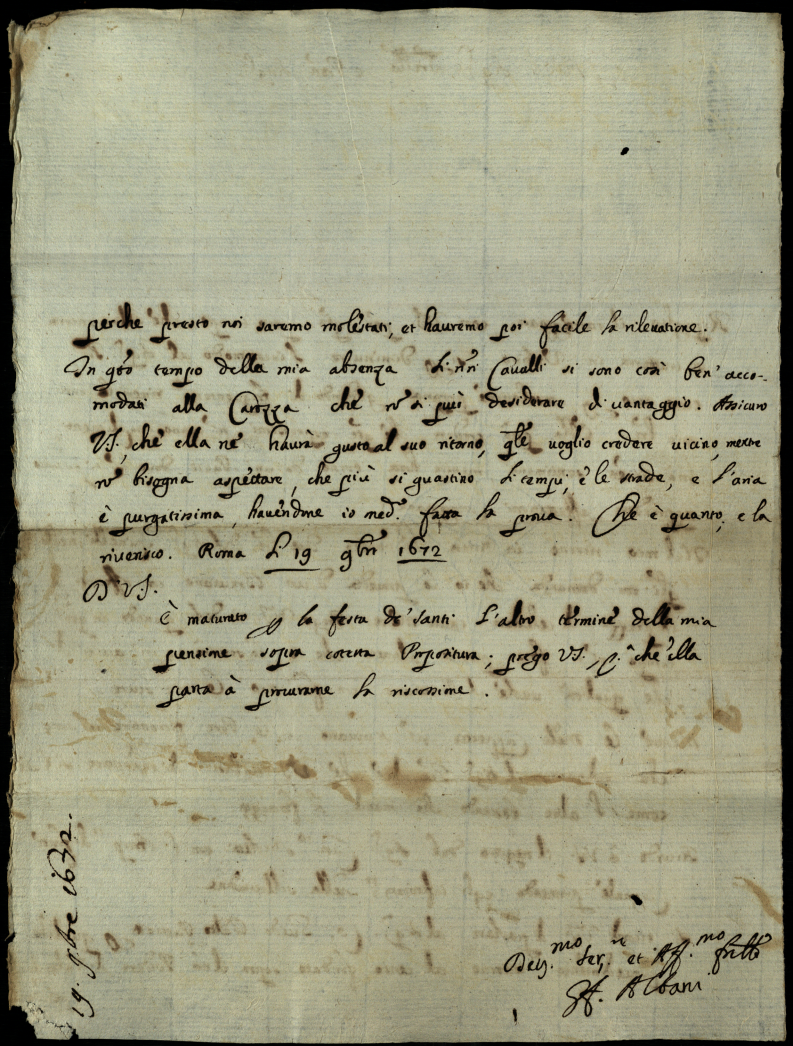 perche presto noi saremo molestati, et hauremo poi facile la rileuatione.
In qto tempo della mia absenza li nri Caualli si sono così ben' acco-
modati alla Carozza che nõ si può desiderare di uantaggio. Assicuro
VS. che ella ne haurà gusto al suo ritorno, qle uoglio credere uicino, mentre
nõ bisogna aspettare, che più si guastino li tempi, e le strade, e l'aria
è purgatissima, hauendone io med.o fatta la proua. Che è quanto, e la
riuerisco. Roma li 19 9bri 1672
Di VS.
È maturato p la festa de' Santi l'altro termine della mia
pensione sopra cotesta Propositura; prego VS. p.a che ella
parta à procurarne la riscossione.
19. 9bre 1672.
Deu.mo Ser.re et Aff.mo frello
Albani